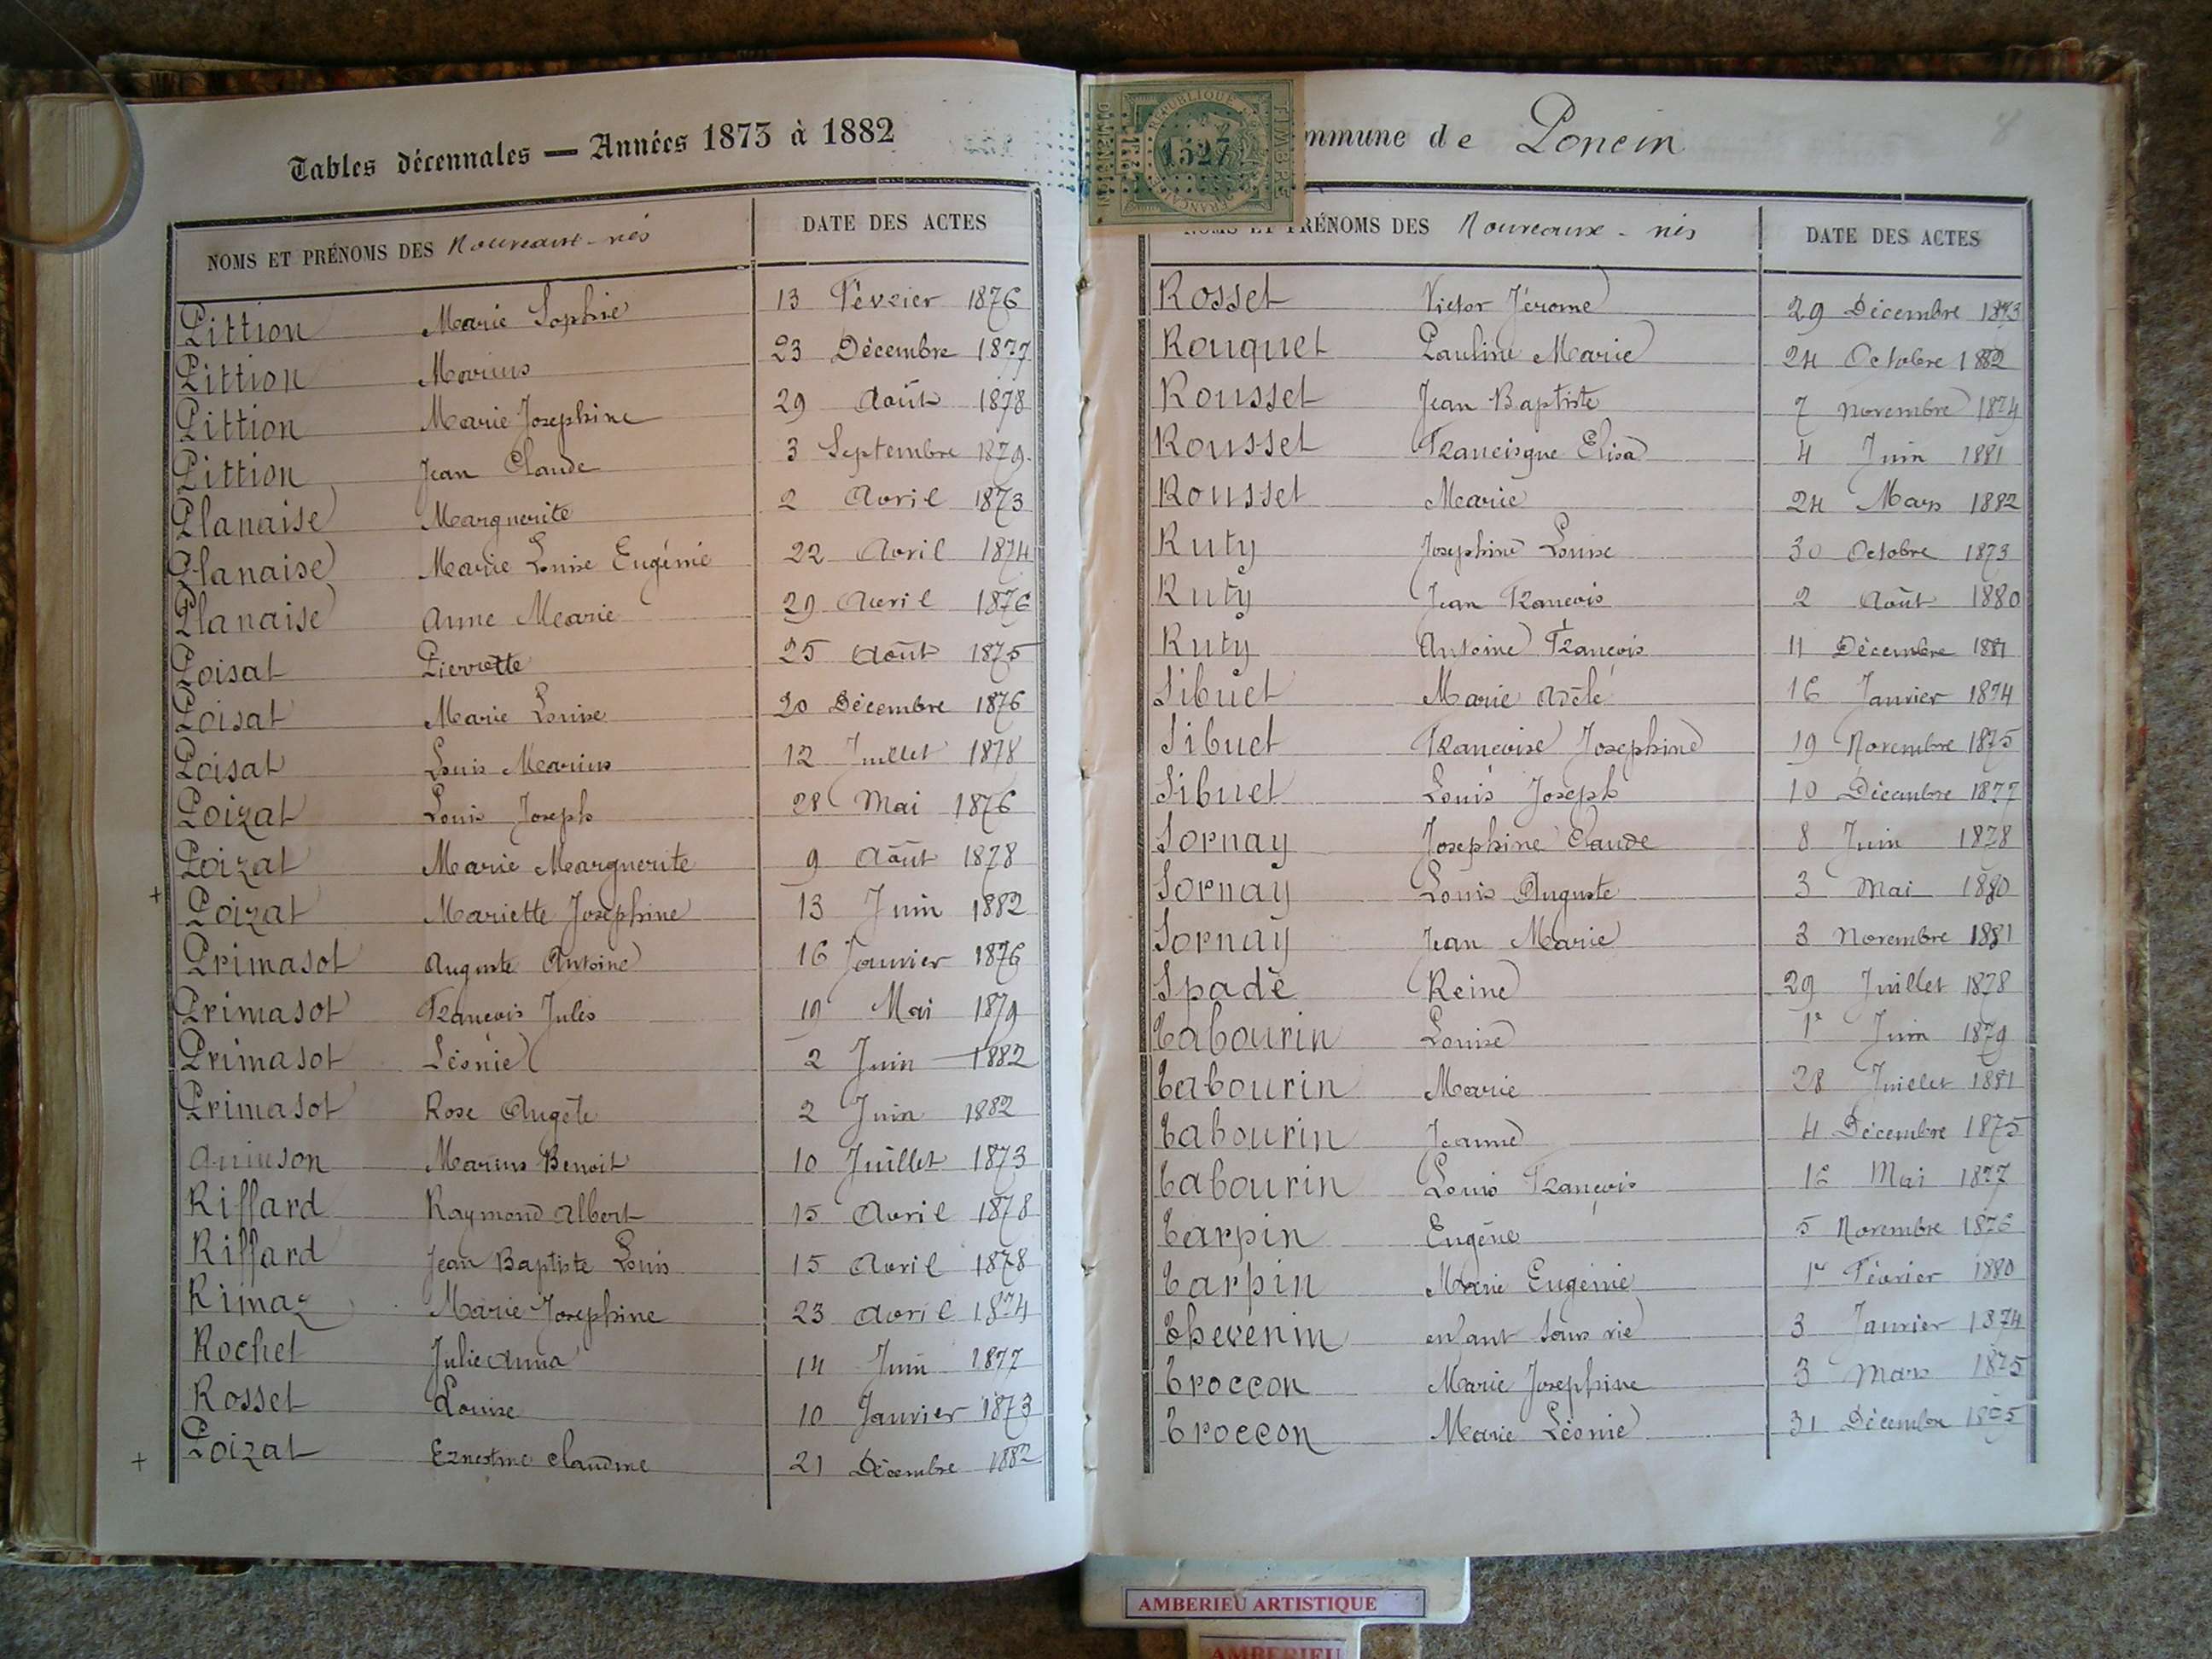 Tables décennales — Années 1873 à 1882
NOMS ET PRÉNOMS DES Nouveaux-nés DATE DES ACTES
Pittion Marie Sophie 13 Février 1876
Pittion Marius 23 Décembre 1877
Pittion Marie Josephine 29 Août 1878
Pittion Jean Claude 3 Septembre 1879
Planaise Marguerite 2 Avril 1873
Planaise Marie Louise Eugénie 22 Avril 1874
Planaise Anne Marie 29 Avril 1876
Poisat Pierrette 25 Août 1875
Poisat Marie Louise 20 Décembre 1876
Poisat Louis Marius 12 Juillet 1878
Poizat Louis Joseph 28 Mai 1876
Poizat Marie Marguerite 9 Août 1878
+ Poizat Mariette Josephine 13 Juin 1882
Primasot Auguste Antoine 16 Janvier 1876
Primasot François Jules 19 Mai 1879
Primasot Léonie 2 Juin 1882
Primasot Rose Angèle 2 Juin 1882
Marius Benoit 10 Juillet 1873
Riffard Raymond Albert 15 Avril 1878
Riffard Jean Baptiste Louis 15 Avril 1878
Rimaz Marie Josephine 23 Avril 1874
Rochet Julie Anna 14 Juin 1877
Rosset Louise 10 Janvier 1873
+ Poizat Ernestine Claudine 21 Décembre 1882
RÉPUBLIQUE FRANÇAISE
TIMBRE
DIMENSION
1527
mmune de Poncin
8
NOMS ET PRÉNOMS DES Nouveaux-nés DATE DES ACTES
Rosset Victor Jérome 29 Décembre 1873
Rouquet Pauline Marie 24 Octobre 1882
Rousset Jean Baptiste 7 Novembre 1874
Rousset Francisque Elisa 4 Juin 1881
Rousset Marie 24 Mars 1882
Ruty Josephine Louise 30 Octobre 1873
Ruty Jean François 2 Août 1880
Ruty Antoine François 11 Décembre 1881
Sibuet Marie Adèle 16 Janvier 1874
Sibuet Françoise Josephine 19 Novembre 1875
Sibuet Louis Joseph 10 Décembre 1877
Sornay Josephine Claude 8 Juin 1878
Sornay Louis Auguste 3 Mai 1880
Sornay Jean Marie 3 Novembre 1881
Spadè Reine 29 Juillet 1878
Tabourin Louise 1er Juin 1879
Tabourin Marie 28 Juillet 1881
Tabourin Jeanne 4 Décembre 1875
Tabourin Louis François 16 Mai 1877
Tarpin Eugène 5 Novembre 1876
Tarpin Marie Eugénie 1er Février 1880
Thevenin enfant sans vie 3 Janvier 1874
Troccon Marie Josephine 3 Mars 1875
Troccon Marie Léonie 31 Décembre
AMBERIEU ARTISTIQUE
AMBERIEU